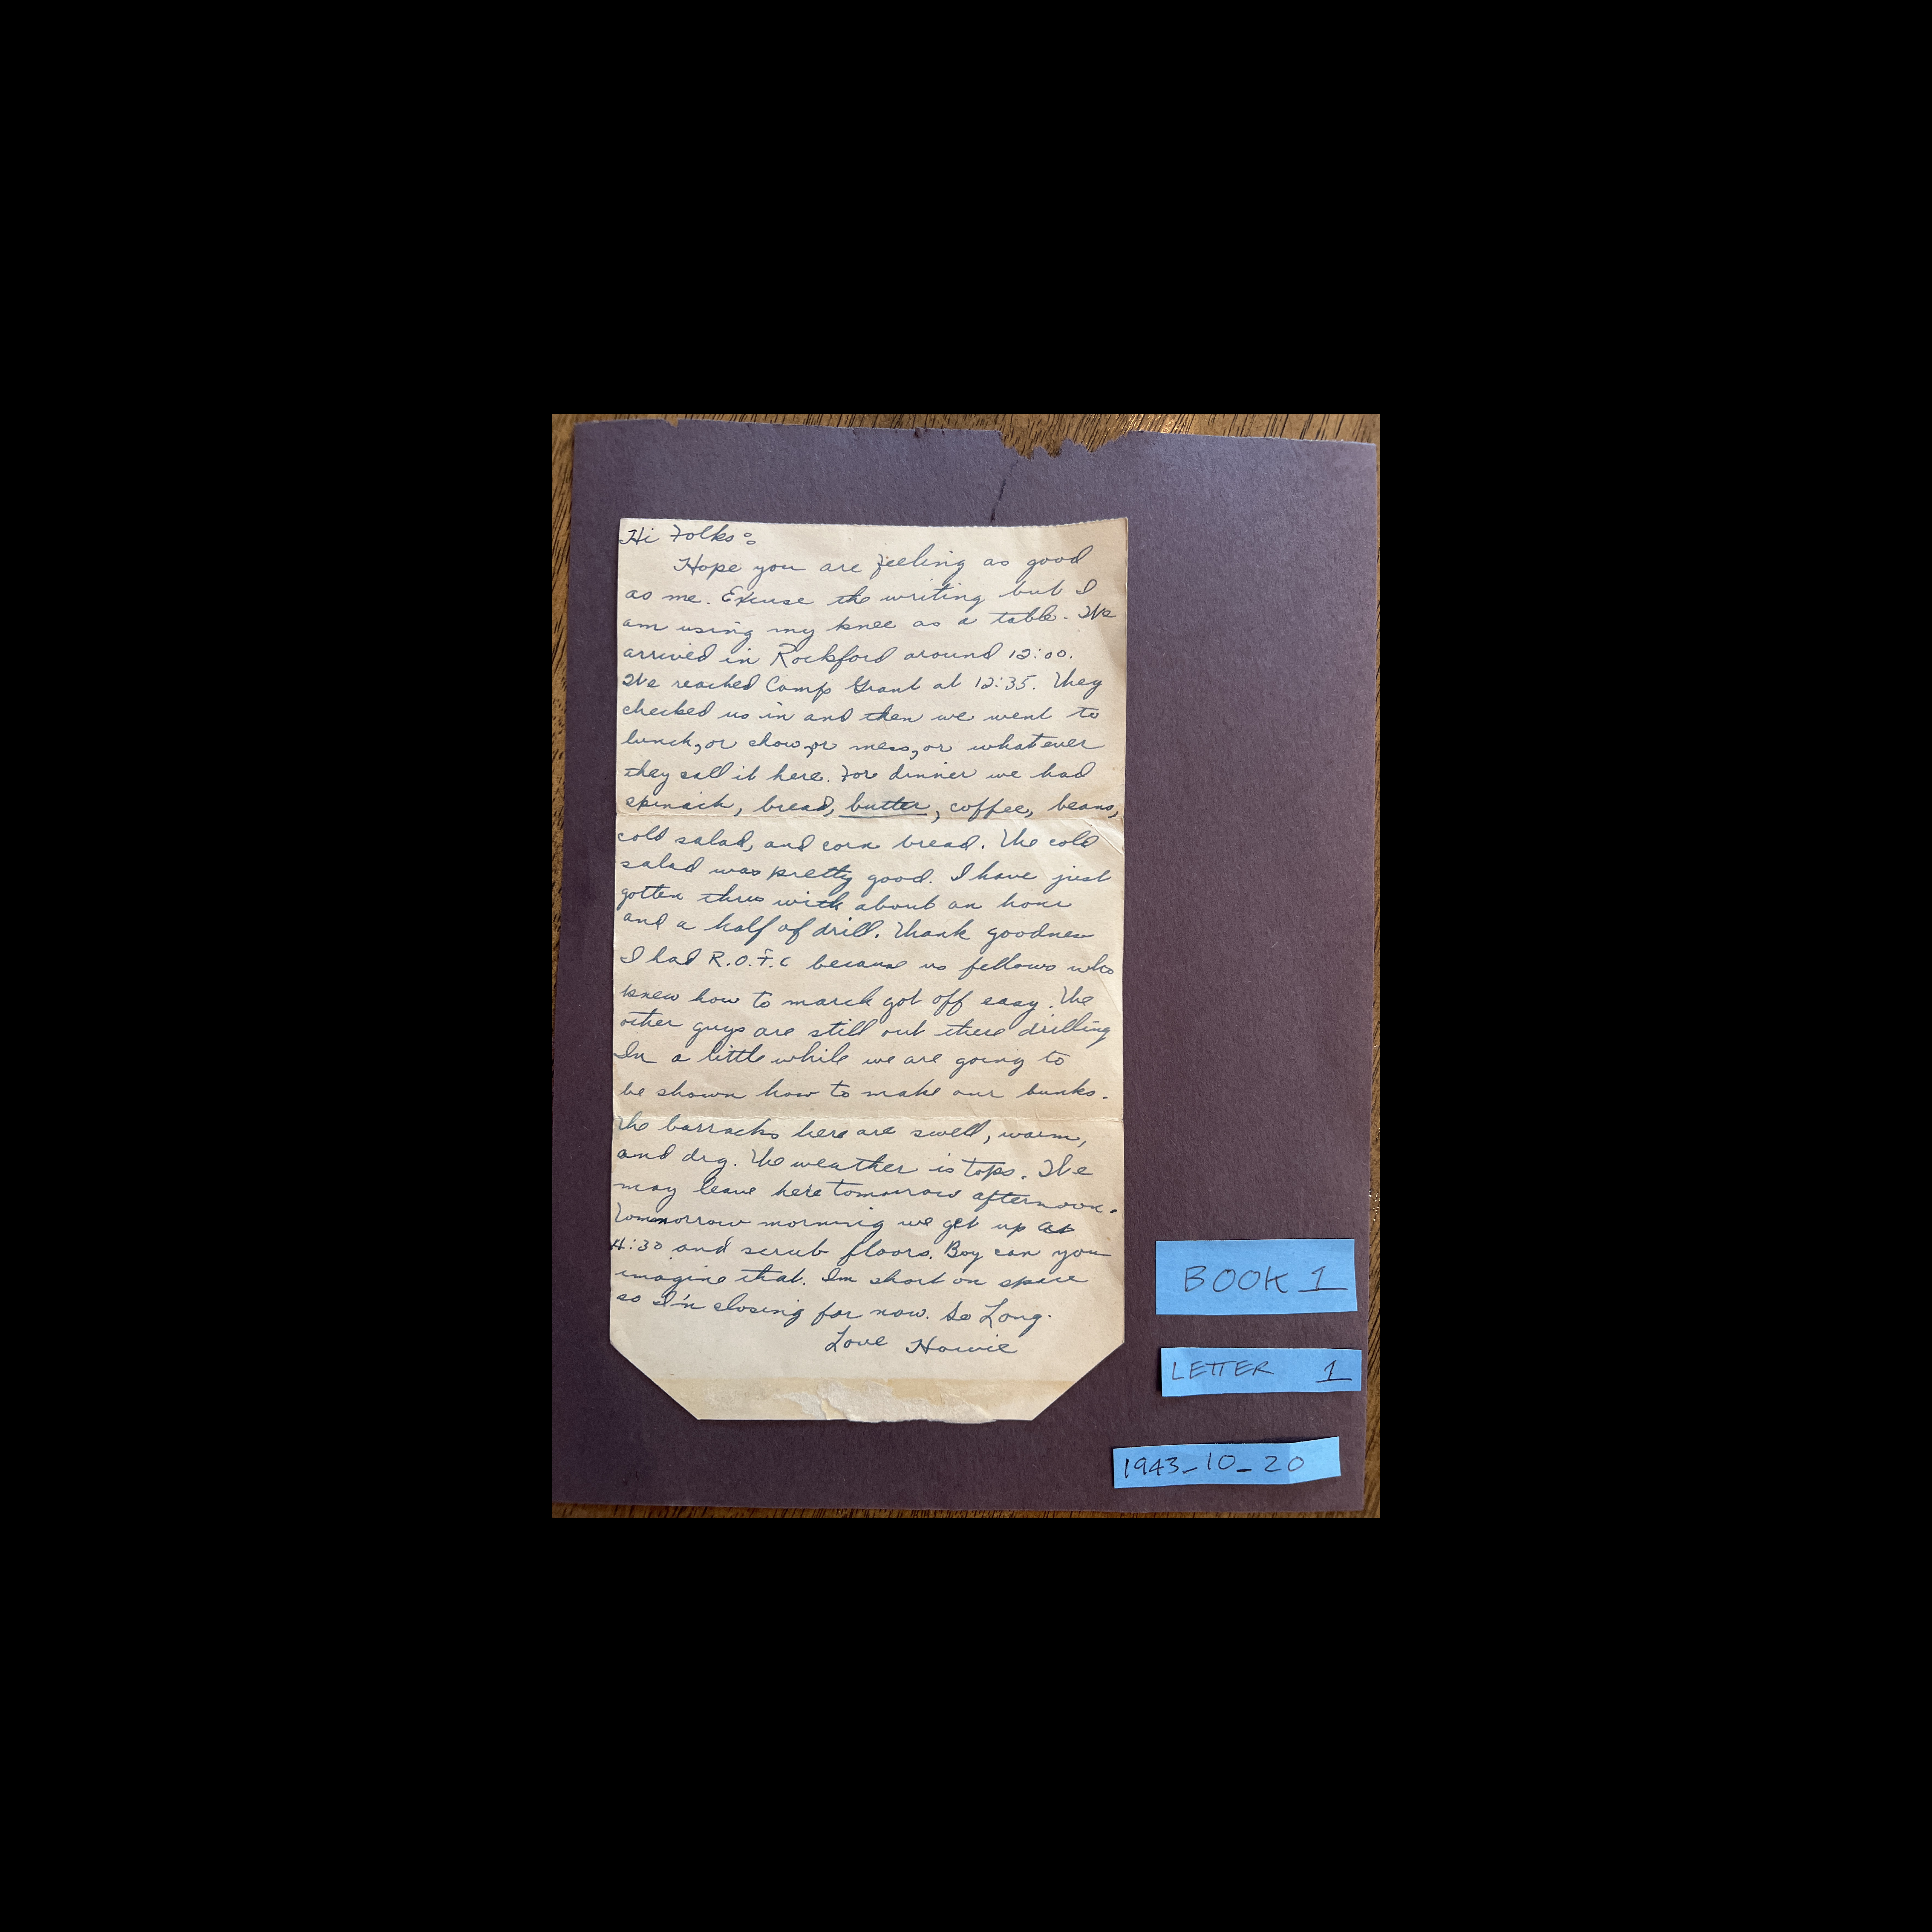 Hi Folks:
Hope you are feeling as good
as me. Excuse the writing but I
am using my knee as a table. We
arrived in Rockford around 12:00.
We reached Camp Grant at 12:35. They
checked us in and then we went to
lunch, or chow, or mess, or whatever
they call it here. For dinner we had
spinach, bread, butter, coffee, beans,
cold salad, and corn bread. The cold
salad was pretty good. I have just
gotten thru with about an hour
and a half of drill. Thank goodness
I had R.O.T.C because us fellows who
knew how to march got off easy. The
other guys are still out there drilling
In a little while we are going to
be shown how to make our bunks.
The barracks here are swell, warm,
and dry. The weather is tops. We
may leave here tomorrow afternoon.
Tommorrow morning we get up at
4:30 and scrub floors. Boy can you
imagine that. Im short on space
so I'm closing for now. So Long.
Love Howie
BOOK 1
LETTER 1
1943_10_20